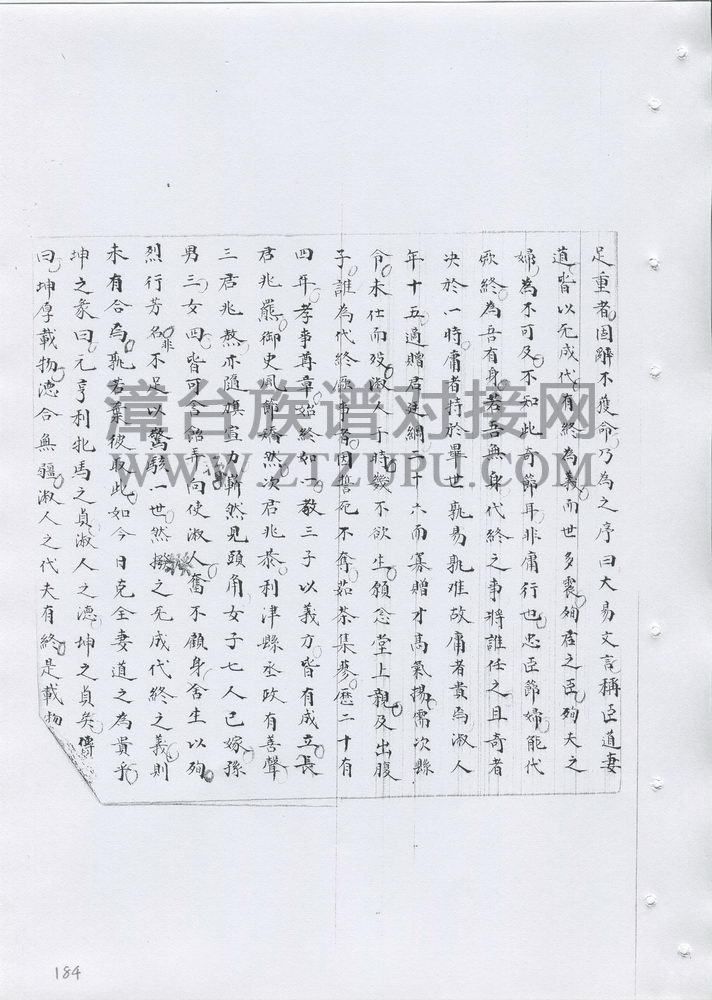 足重者固辭不獲命乃為之序曰大易文言稱臣道妻
道皆以无成代有終為義而世多震殉君之臣殉夫之
婦為不可及不知此奇節耳非庸行也忠臣節婦能代
厥終為吾有身若吾無身代終之事將誰任之且奇者
決於一時庸者持於畢世孰易孰难故庸者貴焉淑人
年十五適贈君廷綱二十六而寡贈才高氣揚需次縣
令未仕而歿淑人于時幾不欲生顧念堂上親及出腹
子誰為代終厥事者因誓死不奪茹荼集蓼歷二十有
四年孝事尊章始終如一教三子以義方皆有成立長
君兆羆御史風節矯然次君兆泰利津縣丞政有善聲
三君兆熬亦隨旗宣力嶄然見頭角女子七人已嫁孫
男三女四皆可含飴弄向使淑人奮不顧身舍生以殉
烈行芳名非不足以驚駭一世然揆之无成代終之義則
未有合焉孰若棄彼取此如今日克全妻道之為貴乎
坤之彖曰元亨利牝馬之貞淑人之德坤之貞矣傳
曰坤厚載物德合無疆淑人之代夫有終是載物
漳台族谱对接网
WWW.ZTZUPU.COM
184